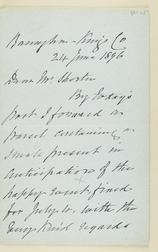 24 June 1896
Dear Mr Shorter
By today's
Post I forward a
Parcel containing a
small present in
anticipation of the
happy event fixed
for July 1st. with the
very kind regards